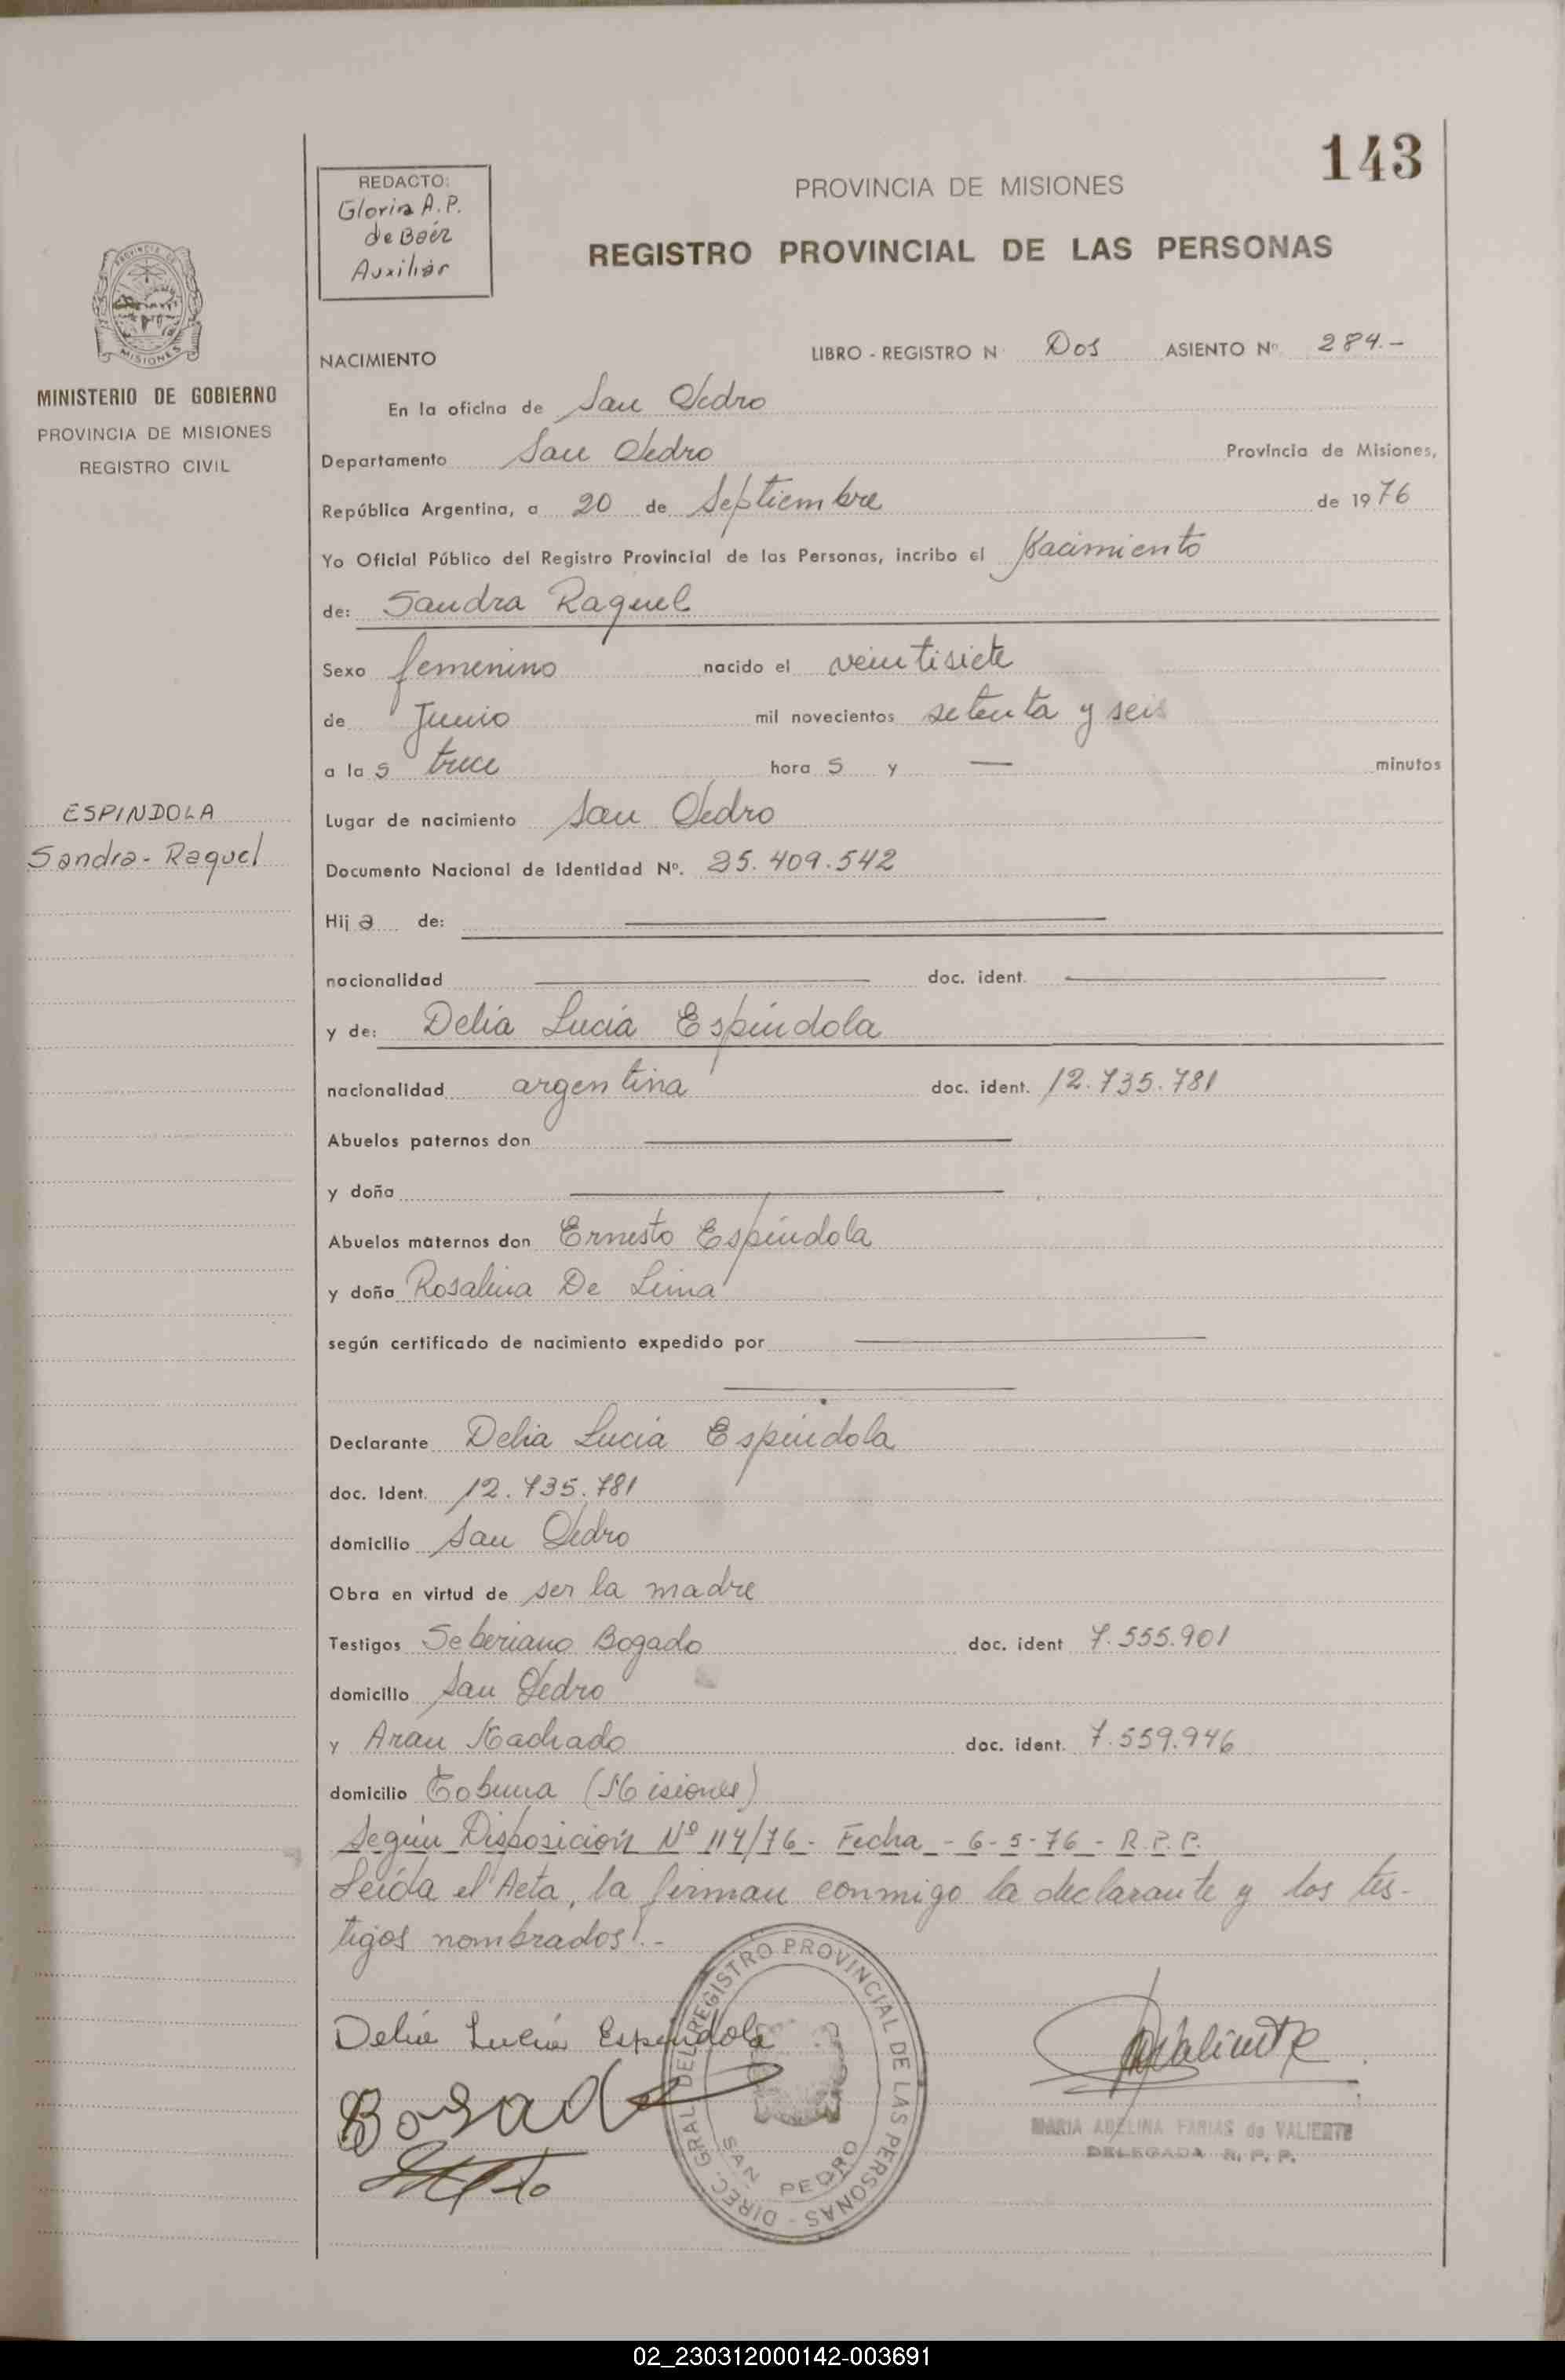 143
REDACTO:
Gloria A. P.
de Baéz
Auxiliar
PROVINCIA DE MISIONES
REGISTRO PROVINCIAL DE LAS PERSONAS
PROVINCIA DE
MISIONES
MINISTERIO DE GOBIERNO
PROVINCIA DE MISIONES
REGISTRO CIVIL
NACIMIENTO LIBRO - REGISTRO N Dos ASIENTO Nº 284.-
En la oficina de San Pedro
Departamento San Pedro Provincia de Misiones,
República Argentina, a 20 de Septiembre de 1976
Yo Oficial Público del Registro Provincial de las Personas, incribo el Nacimiento
de: Sandra Raquel
Sexo femenino nacido el veintisiete
de Junio mil novecientos setenta y seis
a la s trece hora s y — minutos
ESPINDOLA
Sandra - Raquel
Lugar de nacimiento San Pedro
Documento Nacional de Identidad Nº. 25.409.542
Hij a de: ———
nacionalidad ——— doc. ident. ———
y de: Delia Lucía Espíndola
nacionalidad argentina doc. ident. 12.735.781
Abuelos paternos don ———
y doña ———
Abuelos maternos don Ernesto Espíndola
y doña Rosalina De Lima
según certificado de nacimiento expedido por ———
———
Declarante Delia Lucia Espíndola
doc. Ident. 12.735.781
domicilio San Pedro
Obra en virtud de ser la madre
Testigos Seberiano Bogado doc. ident 7.555.901
domicilio San Pedro
y Aran Machado doc. ident. 7.559.946
domicilio Tobuna (Misiones)
Según Disposición Nº 114/76 - Fecha - 6-5-76 - R.P.P.
Leída el Acta, la firman conmigo la declarante y los tes-
tigos nombrados.-
Delia Lucia Espindola
Bogado
DIREC. GRAL. DEL REGISTRO PROVINCIAL DE LAS PERSONAS -
SAN PEDRO
Valiente
MARIA ADELINA FARIAS de VALIENTE
DELEGADA R. P. P.
02_230312000142-003691